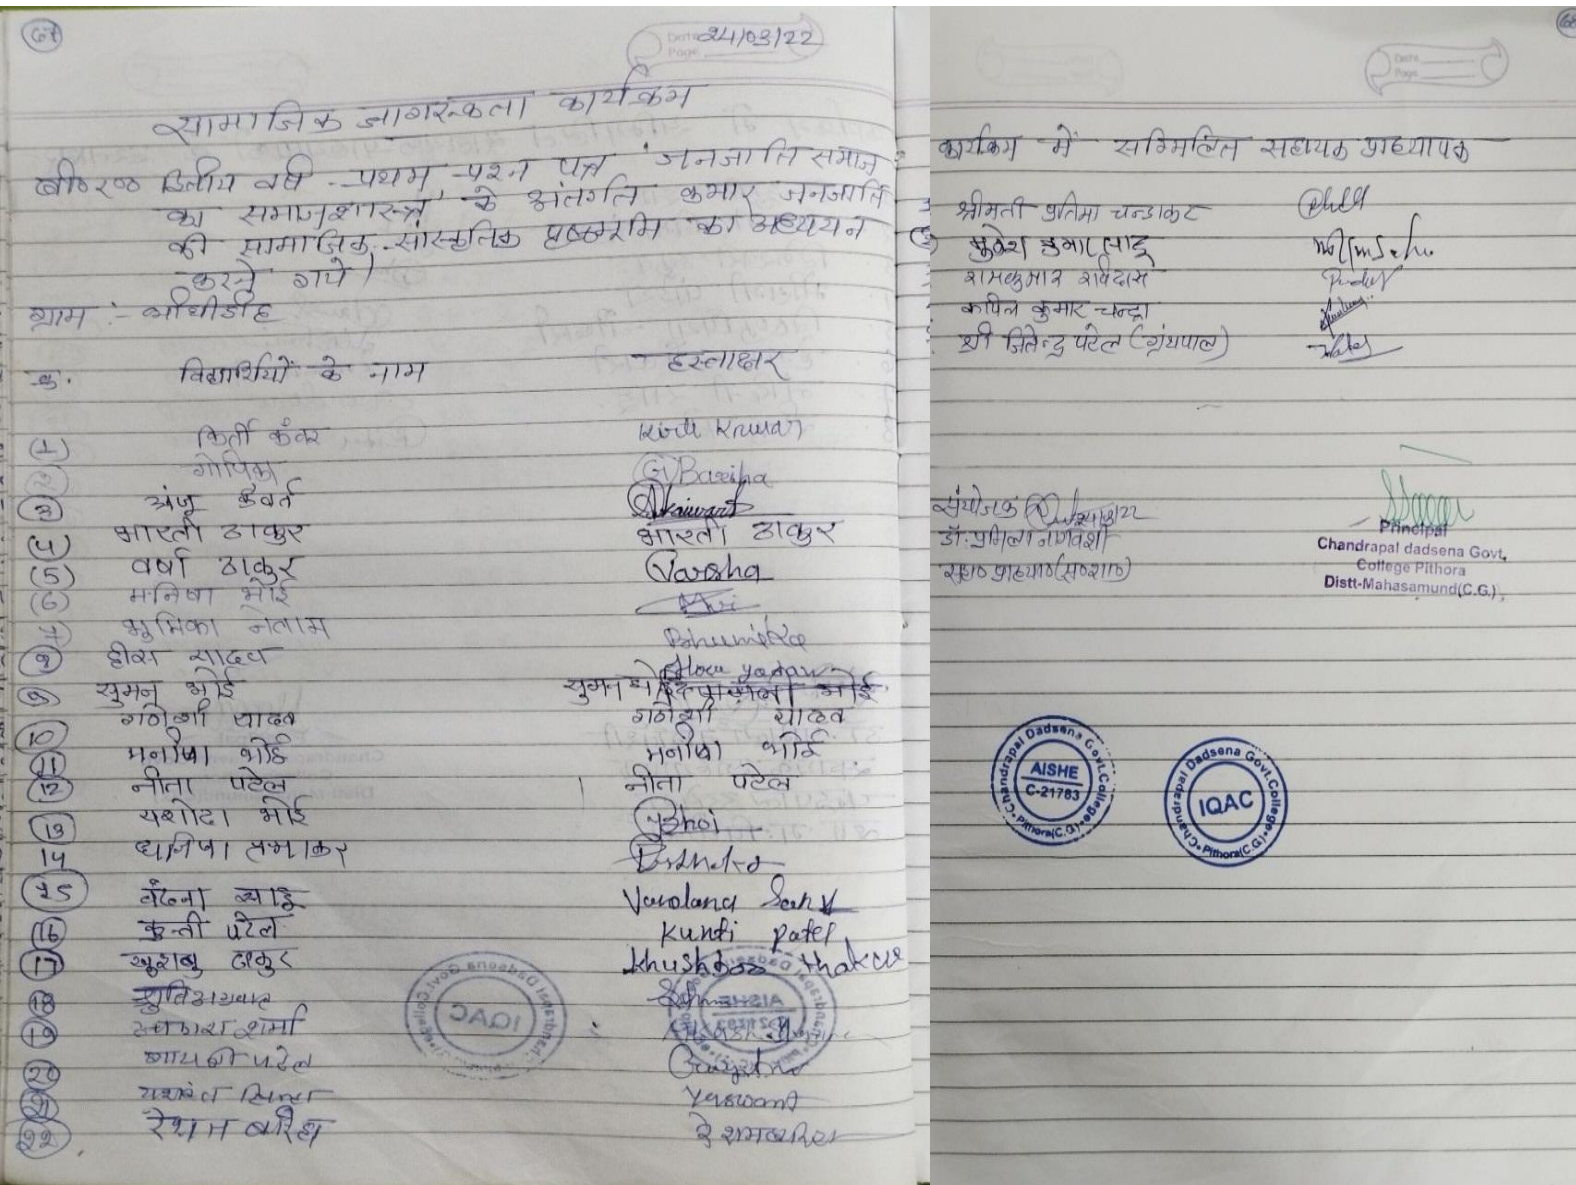 67
Date 24/03/22
Page
सामाजिक जागरूकता कार्यक्रम
बी०ए० द्वितीय वर्ष - प्रथम प्रश्न पत्र 'जनजाति समाज
का समाजशास्त्र' के अंतर्गत कुमार जनजाति
की सामाजिक-सांस्कृतिक पृष्ठभूमि का अध्ययन
करने गये।
ग्राम :-
क्र. विद्यार्थियों के नाम - हस्ताक्षर
(1) किर्ती कंवर
2 गोपिका G Bariha
(3) अंजू केवर्त Akaiwart
(4) भारती ठाकुर भारती ठाकुर
(5) वर्षा ठाकुर Varsha
(6) मनिषा भोई
7 भूमिका नेताम Bhumika
8 यादव yadav
9 सुमन भोई सुमन भोई
10 गणेशी यादव गणेशी यादव
11 मनीषा भोई मनीषा भोई
12 नीता पटेल नीता पटेल
13 यशोदा भोई YBhoi
14
15 वंदना साहू Vandana Sahu
16 कुन्ती पटेल Kunti patel
17 खुशबु ठाकुर Khushboo thakur
18
19 शर्मा
20 गायत्री पटेल
21 यशवंत सिन्हा Yaswant
22 रेशम बरिहा रेशम बरिहा
68
Date
Page
कार्यक्रम में सम्मिलित सहायक प्राध्यापक
श्रीमती प्रतिमा चन्द्राकर
रामकुमार रविदास
कपिल कुमार चन्द्रा
श्री जितेन्द्र पटेल (ग्रंथपाल)
संयोजक
डॉ. प्रमिला नागवंशी
सहा० प्राध्या०
Principal
Chandrapal dadsena Govt.
College Pithora
Distt-Mahasamund(C.G.)
Chandrapal Dadsena Govt. College
AISHE
C-21783
Pithora(C.G.)
Chandrapal Dadsena Govt. College
IQAC
Pithora(C.G.)